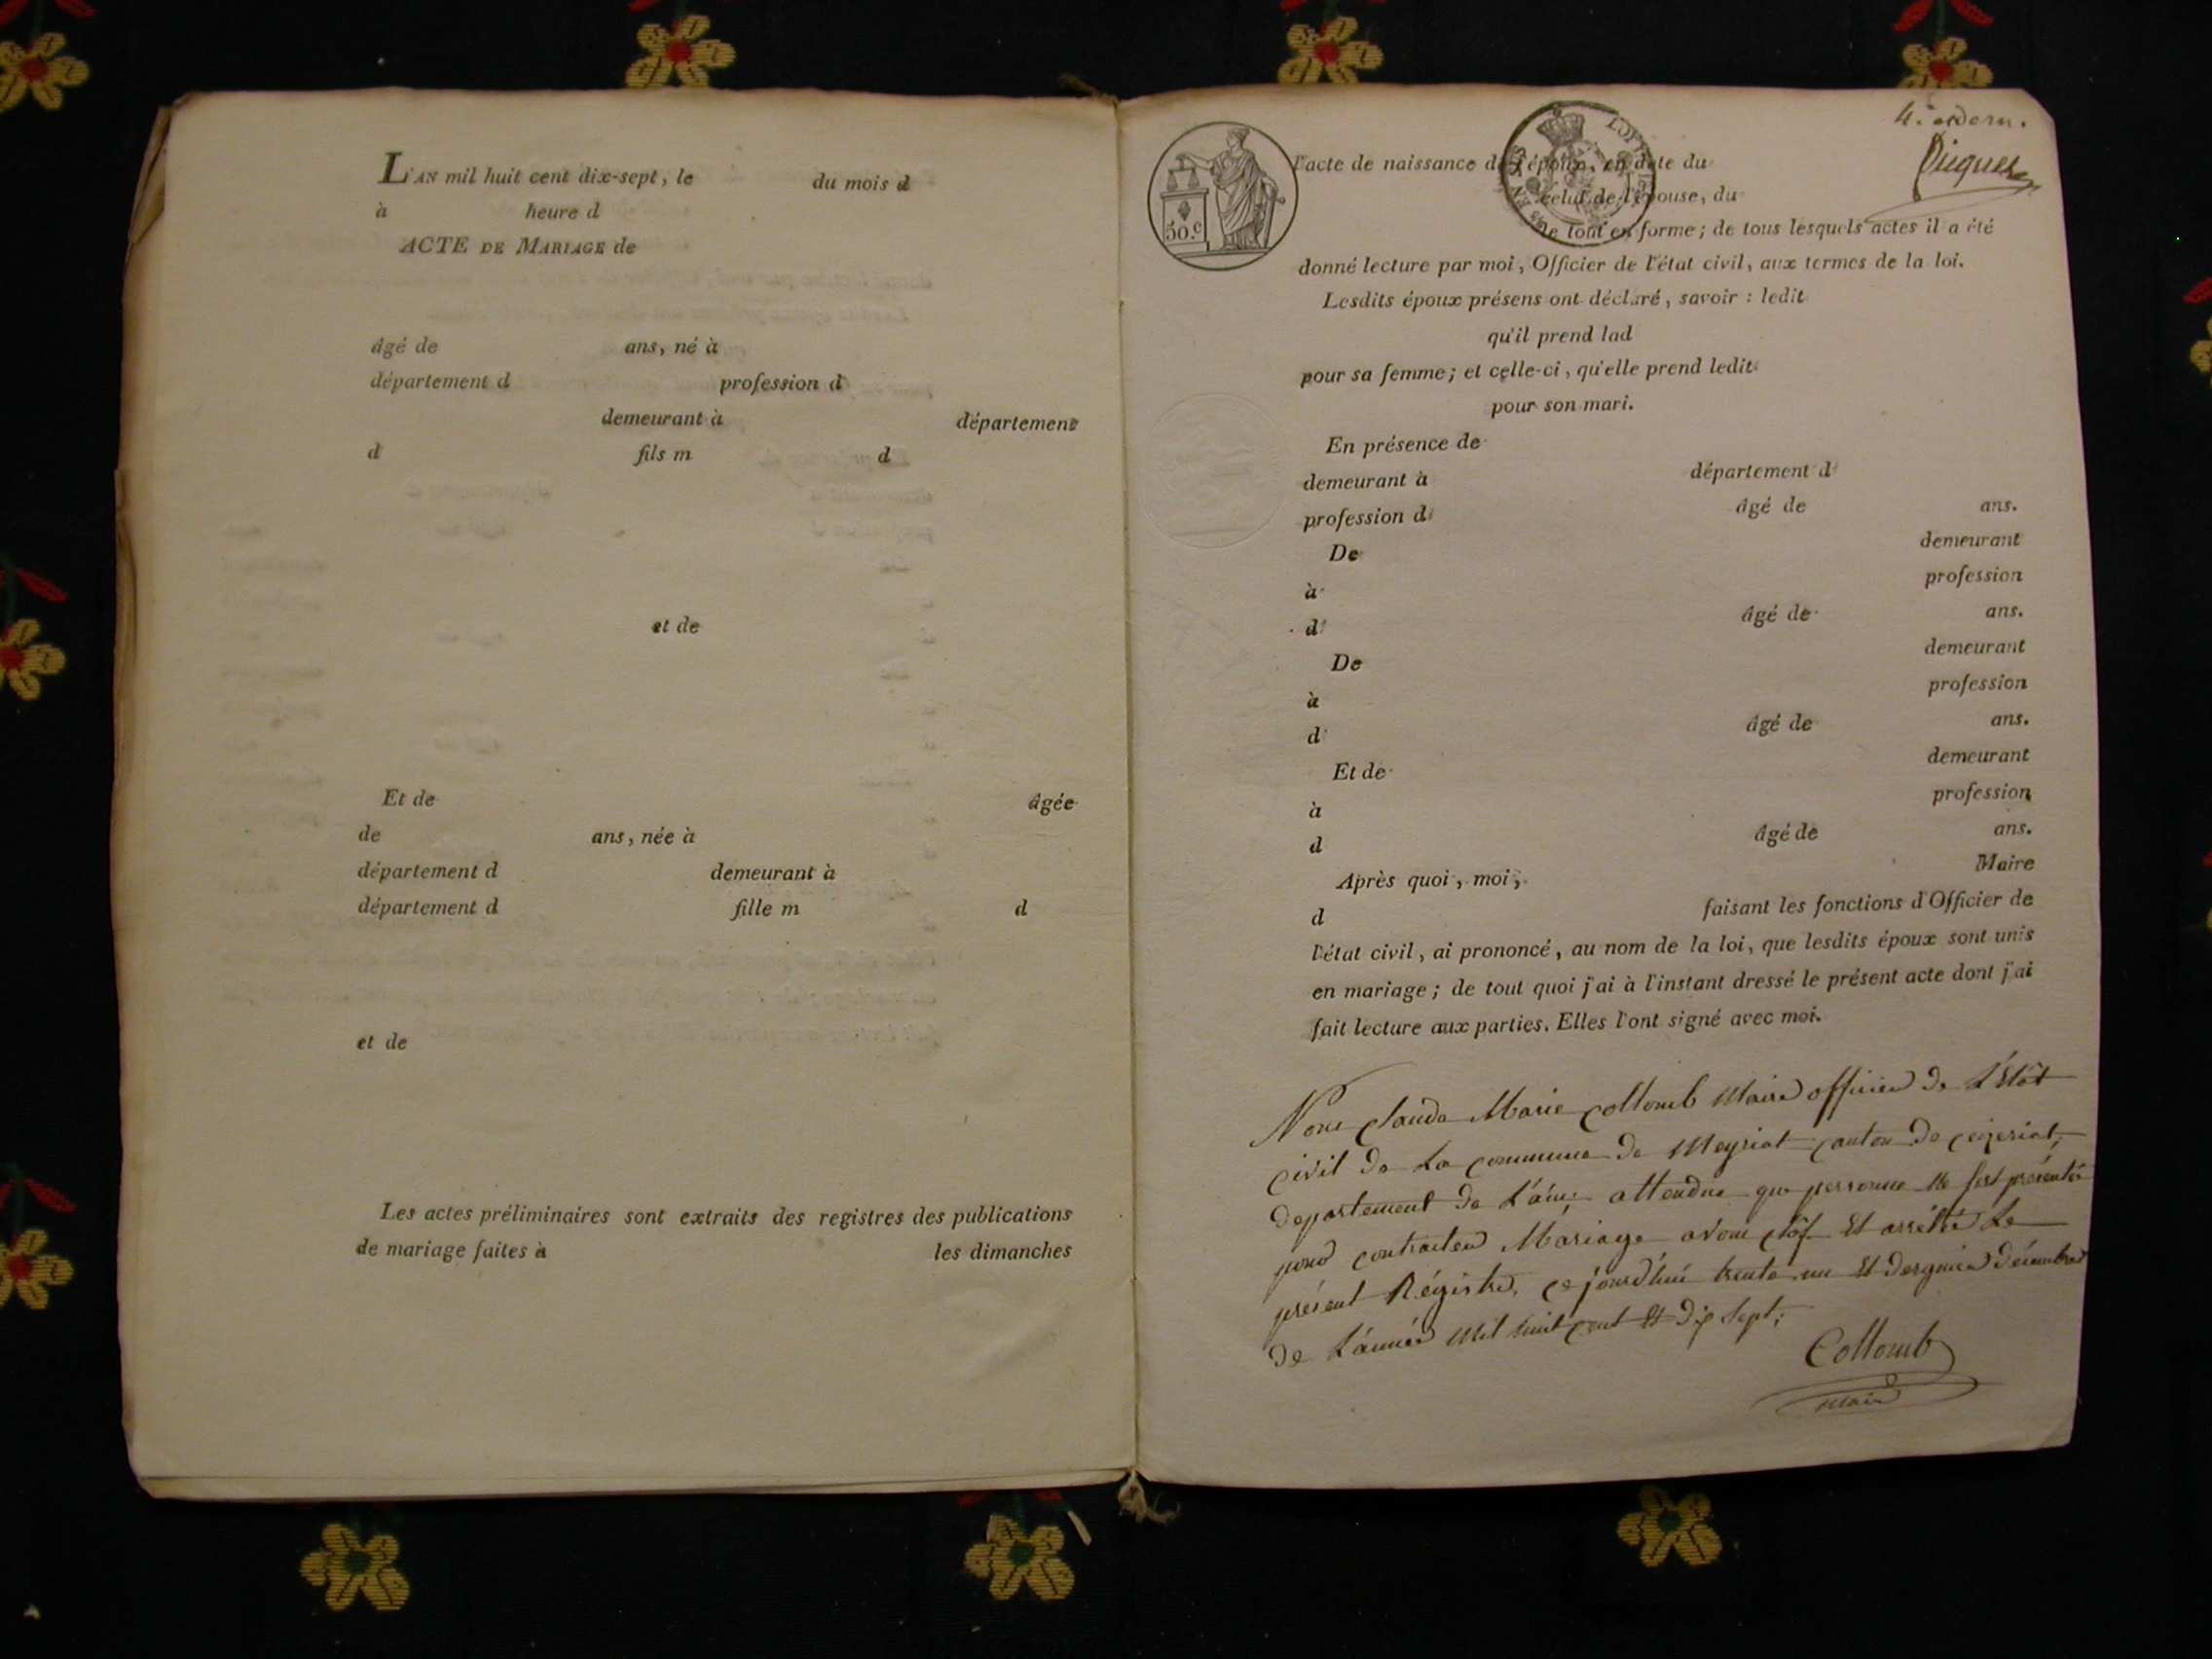 L'AN mil huit cent dix-sept, le du mois d
à heure d
ACTE DE MARIAGE de
âgé de ans, né à
département d profession d
demeurant à département
d fils m d
et de
Et de âgée
de ans, née à
département d demeurant à
département d fille m d
et de
Les actes préliminaires sont extraits des registres des publications
de mariage faites à les dimanches
4.e et dern.
50.c
l'acte de naissance de l'époux, en date du
celui de l'épouse, du
le tout en forme; de tous lesquels actes il a été
donné lecture par moi, Officier de l'état civil, aux termes de la loi.
Lesdits époux présens ont déclaré, savoir : ledit
qu'il prend lad
pour sa femme; et celle-ci, qu'elle prend ledit
pour son mari.
En présence de
demeurant à département d
profession d âgé de ans.
De demeurant
à profession
d âgé de ans.
De demeurant
à profession
d âgé de ans.
Et de demeurant
à profession
d âgé de ans.
Après quoi, moi, Maire
d faisant les fonctions d'Officier de
l'état civil, ai prononcé, au nom de la loi, que lesdits époux sont unis
en mariage; de tout quoi j'ai à l'instant dressé le présent acte dont j'ai
fait lecture aux parties. Elles l'ont signé avec moi.
Nous Claude Marie Collomb Maire officier de L'Etat
civil de La commune de Meyriat canton de ceyzeriat,
departement de L'ain; attendue que personne Ne s'est présenté
pour contracter Mariage avons clôs Et arrêtté Le
présent Régistre, cejourd'hui trente un Et dergnier Décembre
de L'année Mil huit cent Et Dix sept;
Collomb
maire